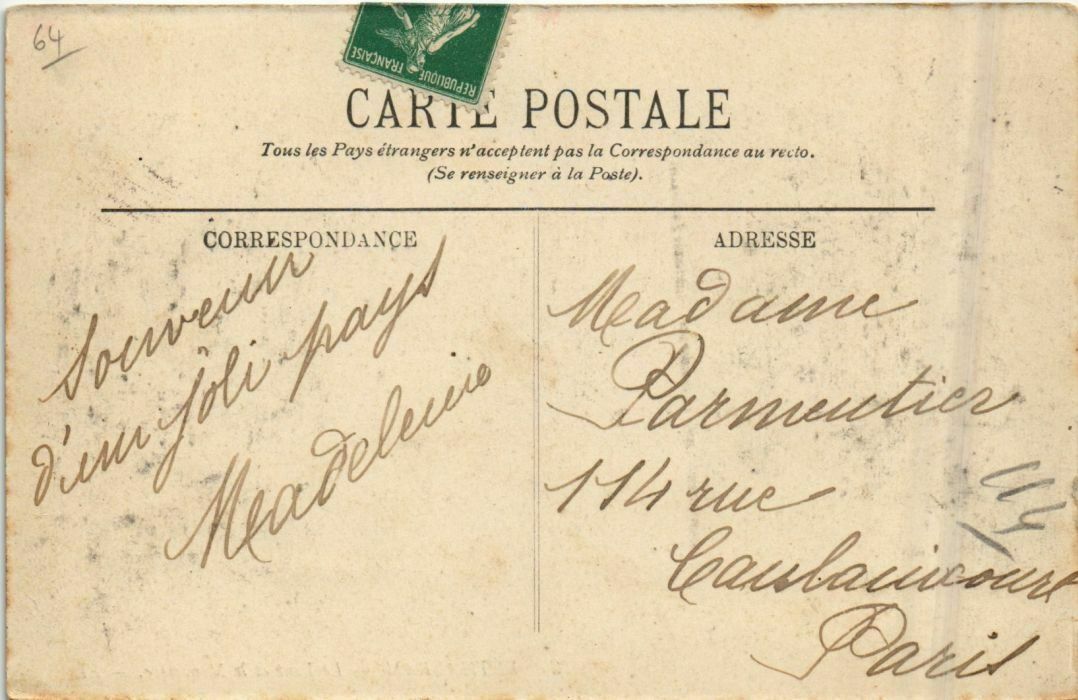 64
RÉPUBLIQUE FRANÇAISE
CARTE POSTALE
Tous les Pays étrangers n'acceptent pas la Correspondance au recto.
(Se renseigner à la Poste).
CORRESPONDANCE
Souvenir
d'un joli pays
Madeleine
ADRESSE
Madame
Parmentier
114 rue
Caulaincourt
Paris
114